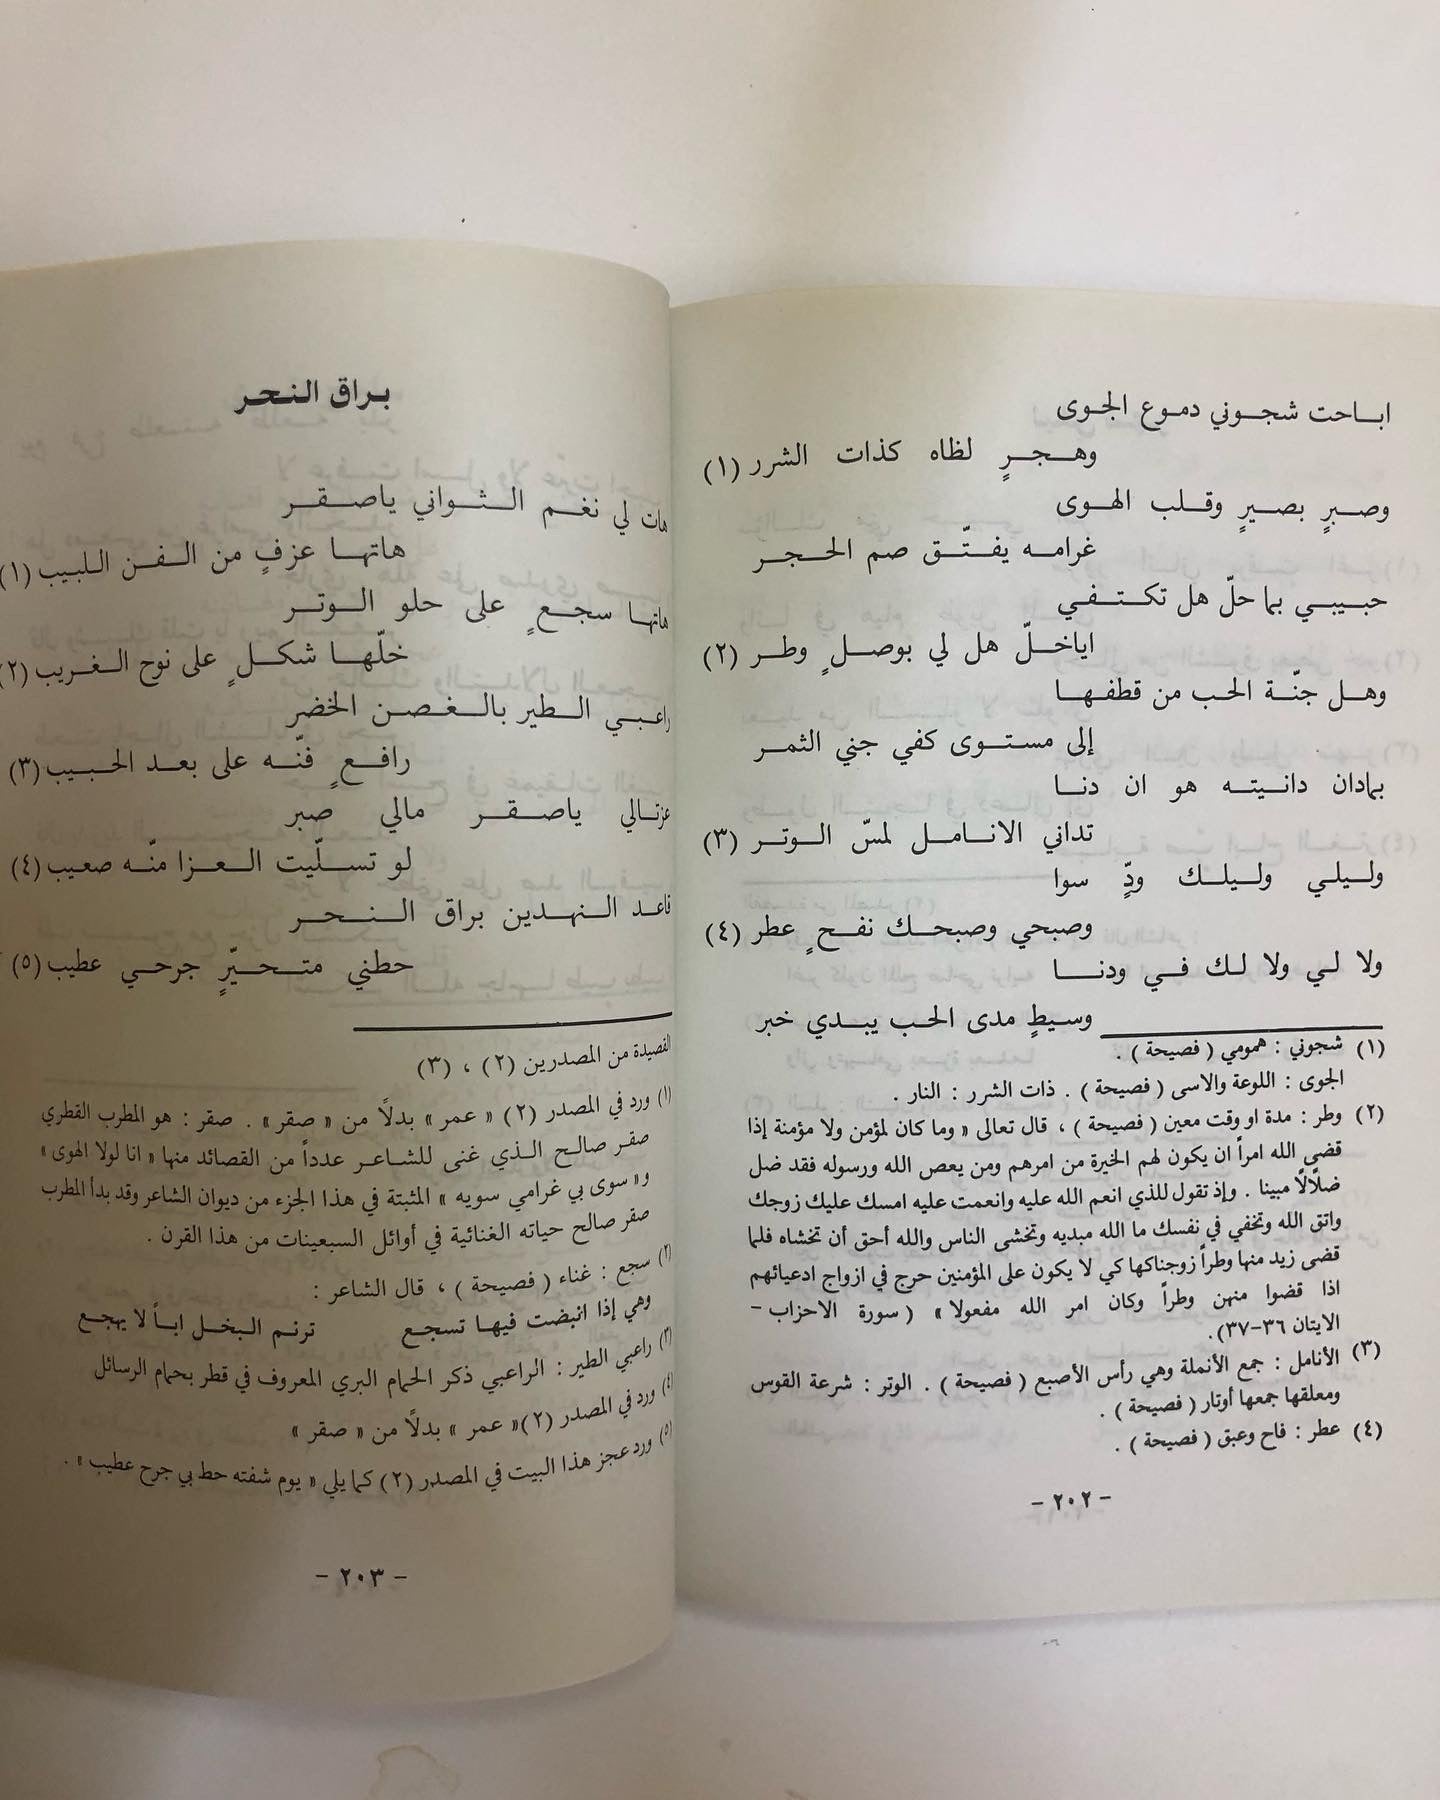 اباحت شجوني دموع الجوى
وهجرٍ لظاه كذات الشرر (١)
وصبرٍ بصيرٍ وقلب الهوى
غرامه يفتّق صم الحجر
حبيبي بما حلّ هل تكتفي
اياخلّ هل لي بوصلٍ وطر (٢)
وهل جنّة الحب من قطفها
إلى مستوى كفي جني الثمر
بمادان دانيته هو ان دنا
تداني الانامل لمسّ الوتر (٣)
وليلي وليلك ودٍّ سوا
وصبحي وصبحك نفحٍ عطر (٤)
ولا لي ولا لك في ودنا
وسيطٍ مدى الحب يبدي خبر
(١) شجوني : همومي ( فصيحة ) .
الجوى : اللوعة والاسى ( فصيحة ) . ذات الشرر : النار .
(٢) وطر : مدة او وقت معين ( فصيحة ) ، قال تعالى « وما كان لمؤمن ولا مؤمنة إذا
قضى الله امراً ان يكون لهم الخيرة من امرهم ومن يعص الله ورسوله فقد ضل
ضلالًا مبينا . وإذ تقول للذي انعم الله عليه وانعمت عليه امسك عليك زوجك
واتق الله وتخفي في نفسك ما الله مبديه وتخشى الناس والله أحق أن تخشاه فلما
قضى زيد منها وطراً زوجناكها كي لا يكون على المؤمنين حرج في ازواج ادعيائهم
اذا قضوا منهن وطراً وكان امر الله مفعولا » ( سورة الاحزاب -
الايتان ٣٦-٣٧).
(٣) الأنامل : جمع الأنملة وهي رأس الأصبع ( فصيحة ) . الوتر : شرعة القوس
ومعلقها جمعها أوتار ( فصيحة ) .
(٤) عطر : فاح وعبق ( فصيحة ) .
- ٢٠٢ -
براق النحر
هات لي نغم الثواني ياصقر
هاتها عزفٍ من الفن اللبيب (١)
هاتها سجعٍ على حلو الوتر
خلّها شكلٍ على نوح الغريب (٢)
راعبي الطير بالغصن الخضر
رافعٍ فنّه على بعد الحبيب (٣)
عزتالي ياصقر مالي صبر
لو تسلّيت العزا منّه صعيب (٤)
قاعد النهدين براق النحر
حطني متحيّرٍ جرحي عطيب (٥)
القصيدة من المصدرين (٢) ، (٣)
(١) ورد في المصدر (٢) « عمر » بدلًا من « صقر » . صقر : هو المطرب القطري
صقر صالح الذي غنى للشاعر عدداً من القصائد منها « انا لولا الهوى »
و« سوى بي غرامي سويه » المثبتة في هذا الجزء من ديوان الشاعر وقد بدأ المطرب
صقر صالح حياته الغنائية في أوائل السبعينات من هذا القرن .
(٢) سجع : غناء ( فصيحة ) ، قال الشاعر :
وهي إذا انبضت فيها تسجع ترنم البخل اباً لا يهجع
(٣) راعبي الطير : الراعبي ذكر الحمام البري المعروف في قطر بحمام الرسائل
(٤) ورد في المصدر (٢) « عمر » بدلًا من « صقر »
(٥) ورد عجز هذا البيت في المصدر (٢) كما يلي « يوم شفته حط بي جرح عطيب » .
- ٢٠٣ -